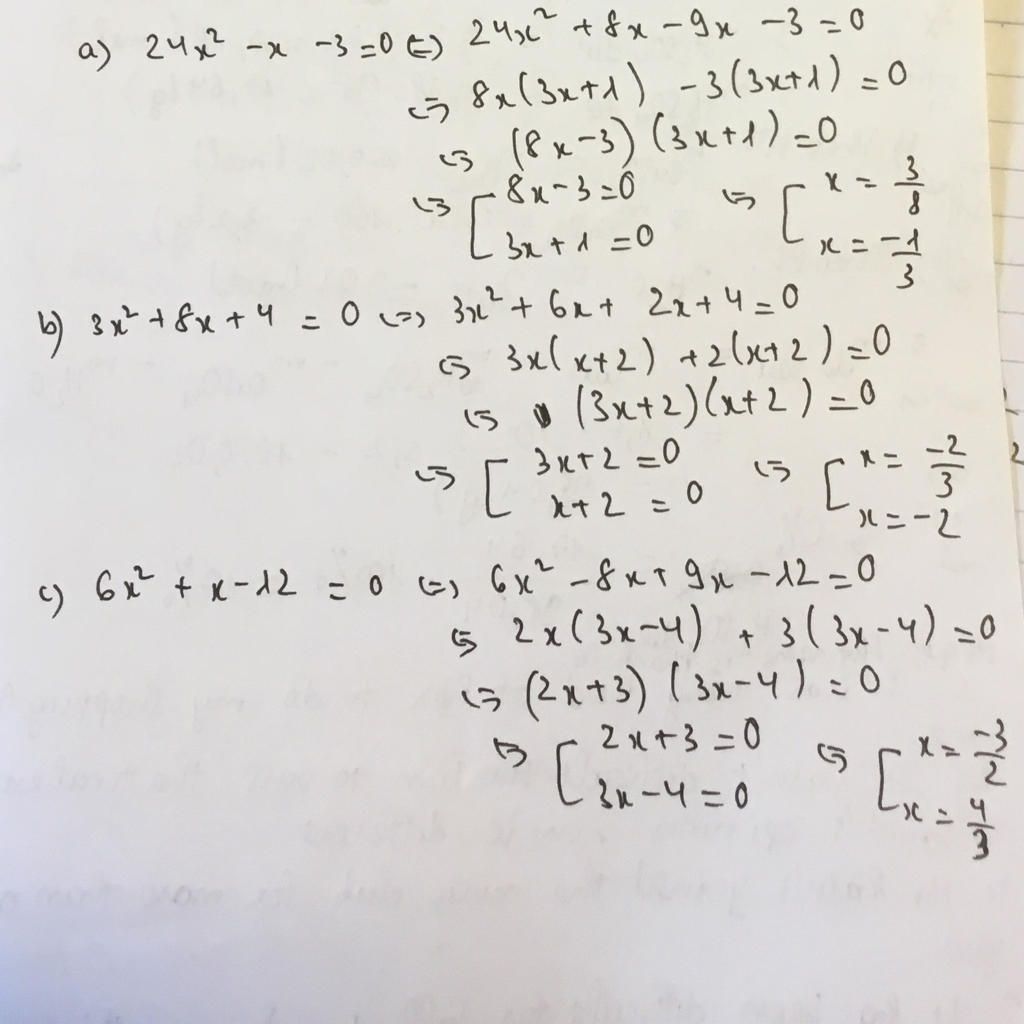 a) 24x² - x - 3 = 0 ⇔ 24x² + 8x - 9x - 3 = 0
⇔ 8x(3x+1) - 3(3x+1) = 0
⇔ (8x-3)(3x+1) = 0
⇔ [ 8x-3=0 ⇔ [ x = 3/8
3x+1=0 x = -1/3
b) 3x² + 8x + 4 = 0 ⇔ 3x² + 6x + 2x + 4 = 0
⇔ 3x(x+2) + 2(x+2) = 0
⇔ (3x+2)(x+2) = 0
⇔ [ 3x+2 = 0 ⇔ [ x = -2/3
x+2 = 0 x = -2
c) 6x² + x - 12 = 0 ⇔ 6x² - 8x + 9x - 12 = 0
⇔ 2x(3x-4) + 3(3x-4) = 0
⇔ (2x+3)(3x-4) = 0
⇔ [ 2x+3 = 0 ⇔ [ x = -3/2
3x-4 = 0 x = 4/3